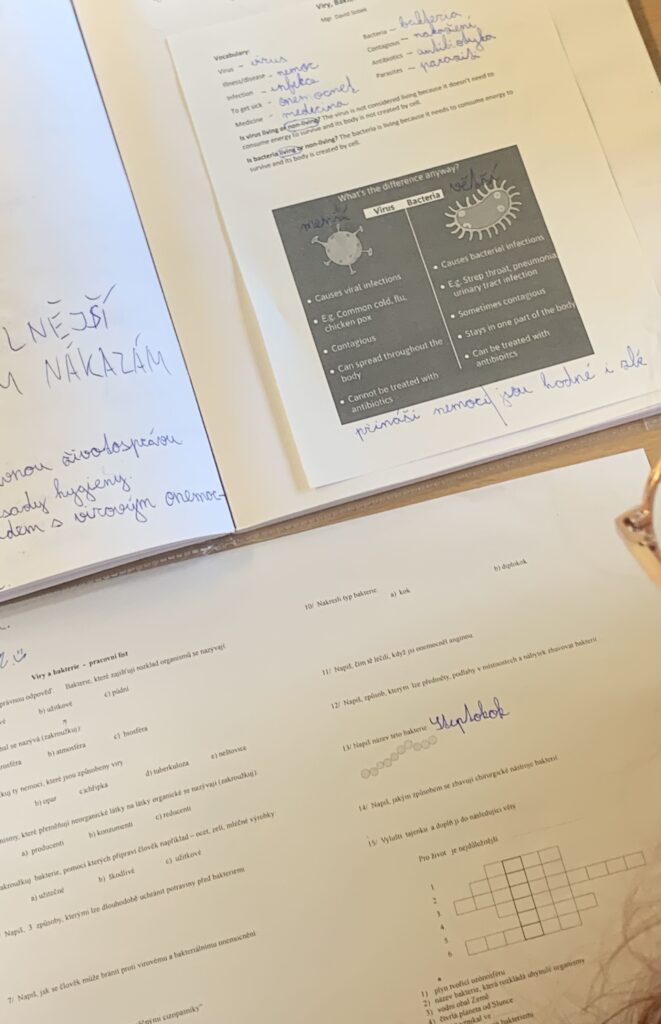 LNĚJŠÍ
M NÁKAZÁM
vnou životosprávu
sady hygieny.
idem s virovým onemoc-
Viry, Bak
Mgr. David
Vocabulary:
Virus – virus
Illness/disease – nemoc
Infection – infekce
To get sick – onemocnět
Medicine – medicína
Bacteria – bakteria
Contagious – nakažení
Antibiotics – antibiotyka
Parasites – parazit
Is virus living or non-living? The virus is not considered living because it doesn't need to
consume energy to survive and its body is not created by cell.
Is bacteria living or non-living? The bacteria is living because it needs to consume energy to
survive and its body is created by cell.
What's the difference anyway?
menší
větší
Virus Bacteria
• Causes viral infections
• E.g. Common cold, flu,
chicken pox
• Contagious
• Can spread throughout the
body
• Cannot be treated with
antibiotics
• Causes bacterial infections
• E.g. Strep throat, pneumonia,
urinary tract infection
• Sometimes contagious
• Stays in one part of the body
• Can be treated with
antibioitcs
přináší nemocy jsou hodné i zlé
Viry a bakterie - pracovní list
správnou odpověď. Bakterie, které zajišťují rozklad organismů se nazývají
b) užitkové c) půdní
obal se nazývá (zakroužkuj):
b) atmosféra c) biosféra
kuj ty nemoci, které jsou způsobeny viry
b) opar c) chřipka d) tuberkuloza e) neštovice
nismy, které přeměňují neorganické látky na látky organické se nazývají (zakroužkuj):
a) producenti b) konzumenti c) reducenti
akroužkuj bakterie, pomocí kterých připraví člověk například – ocet, zelí, mléčné výrobky
a) užitečné b) škodlivé c) užitkové
Napiš, 3 způsoby, kterými lze dlouhodobě uchránit potraviny před bakteriemi
7/ Napiš, jak se člověk může bránit proti virovému a bakteriálnímu onemocnění
cizopasníky"
10/ Nakresli typ bakterie: a) kok b) diplokok
11/ Napiš, čím tě léčili, když jsi onemocněl anginou
12/ Napiš, způsob, kterým lze předměty, podlahy v místnostech a nábytek zbavovat bakterií
13/ Napiš název této bakterie Steptokok
14/ Napiš, jakým způsobem se zbavují chirurgické nástroje bakterií
15/ Vylušti tajenku a doplň ji do následující věty
Pro život je nejdůležitější
1.
2.
3.
4.
5.
6.
1) plyn tvořící ozonosféru
2) název bakterie, která rozkládá uhynulé organismy
3) vodní obal Země
4) čtvrtá planeta od Slunce